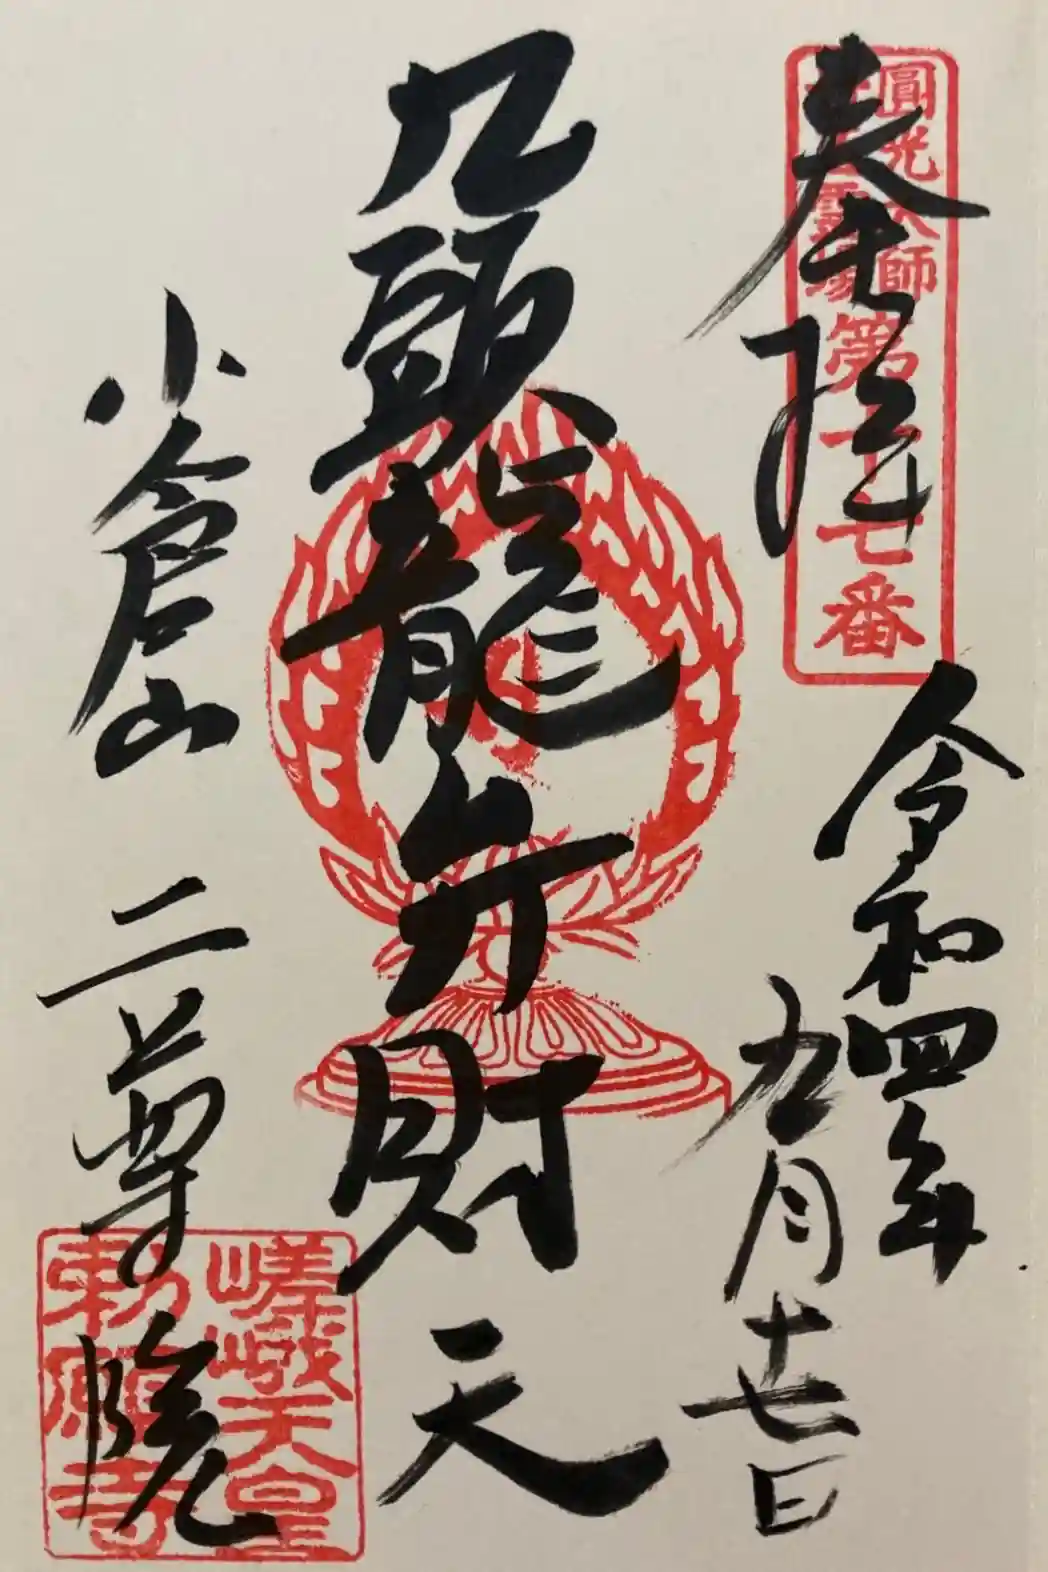 奉拝
圓光大師
二十五霊場
第十七番
令和四年
九月十七日
九頭龍弁財天
小倉山 二尊院
嵯峨天皇
勅願寺